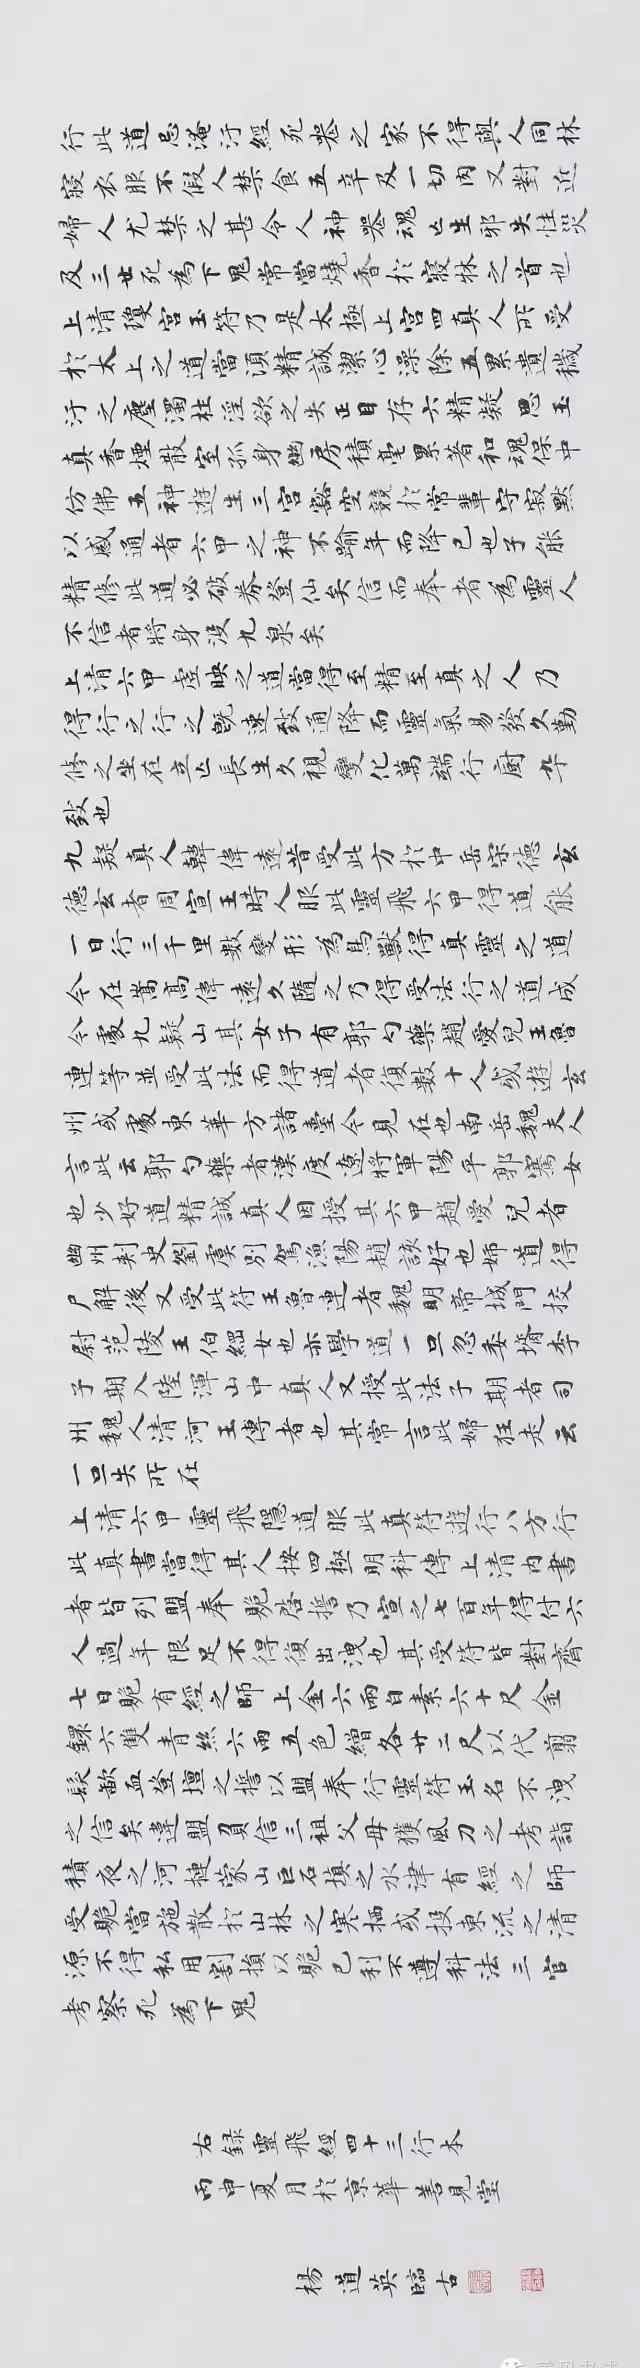 行此道忌淹汙經死喪之家不得與人同牀
寢衣服不假人禁食五辛及一切肉又對近
婦人尤禁之甚令人神喪魂亡生邪失性災
及三世死為下鬼常當燒香於寢牀之首也
上清瓊宮玉符乃是太極上宮四真人所受
於太上之道當須精誠潔心澡除五累遺穢
汙之塵濁杜淫欲之失正目存六精凝思玉
真香煙散室孤身幽房積毫累著和魂保中
仿佛五神遊生三宮豁空競於常輩守寂默
以感通者六甲之神不踰年而降已也子能
精修此道必破券登仙矣信而奉者為靈人
不信者將身沒九泉矣
上清六甲虛映之道當得至精至真之人乃
得行之行之既速致通降而靈氣易發久勤
修之坐在立亡長生久視變化萬端行廚卒
致也
九疑真人韓偉遠昔受此方於中岳宋德玄
德玄者周宣王時人服此靈飛六甲得道能
一日行三千里數變形為鳥獸得真靈之道
今在嵩高偉遠久隨之乃得受法行之道成
今處九疑山其女子有郭勺藥趙愛兒王魯
連等並受此法而得道者復數十人或遊玄
州或處東華方諸臺今見在也南岳魏夫人
言此云郭勺藥者漢度遼將軍陽平郭騫女
也少好道精誠真人因授其六甲趙愛兒者
幽州刾史劉虞別駕漁陽趙該姊也好道得
尸解後又受此符王魯連者魏明帝城門挍
尉范陵王伯綱女也亦學道一旦忽委壻李
子期入陸渾山中真人又授此法子期者司
州魏人清河王傳者也其常言此婦狂走云
一旦失所在
上清六甲靈飛隱道服此真符遊行八方行
此真書當得其人按四極明科傳上清內書
者皆列盟奉貺啓誓乃宣之七百年得付六
人過年限足不得復出洩也其受符皆對齋
七日貺有經之師上金六兩白素六十尺金
鐶六雙青絲六兩五色繒各廿二尺以代翦
髮歃血登壇之誓以盟奉行靈符玉名不洩
之信矣違盟負信三祖父母獲風刀之考詣
積夜之河摙蒙山巨石填之水津有經之師
受貺當施散於山林之寒栖或投東流之清
源不得私用割損以贍己利不遵科法三官
考察死為下鬼
右錄靈飛經四十三行本
丙申夏月於京華善見堂
楊道英臨古